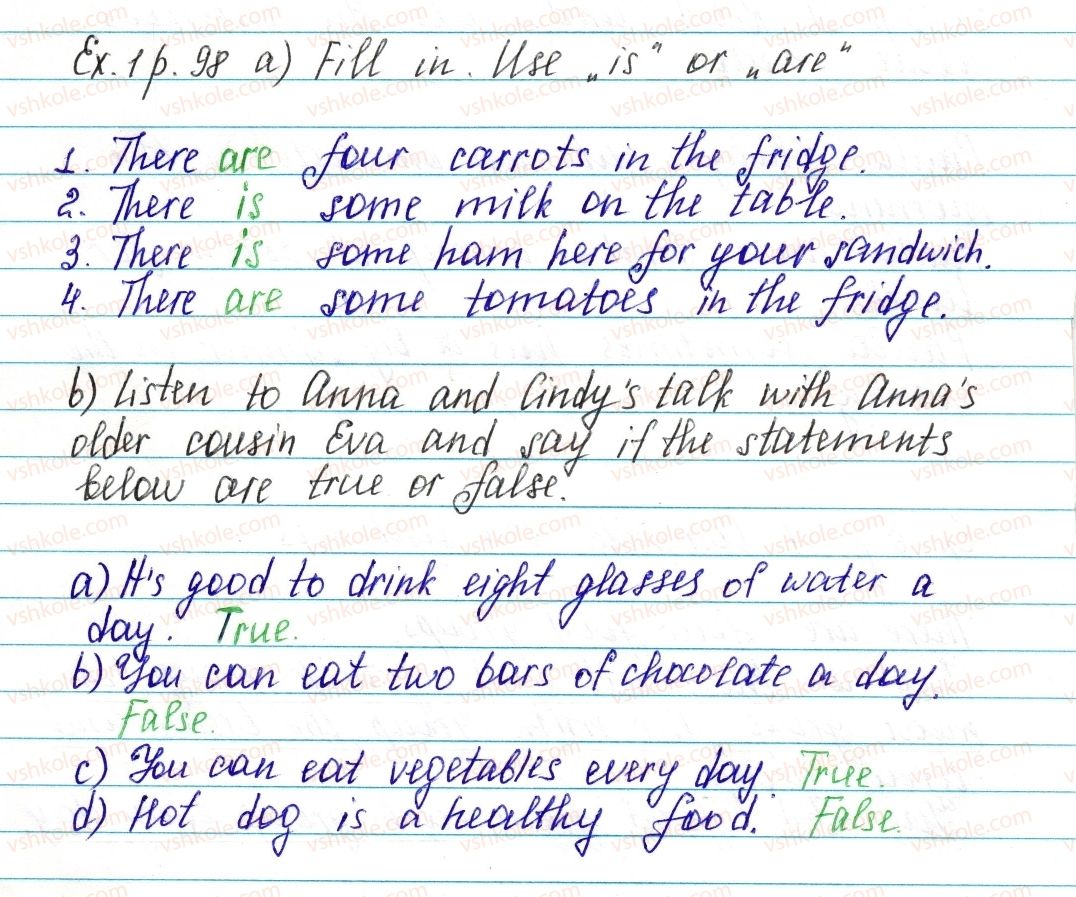 Ex. 1 p. 98 a) Fill in. Use „is“ or „are“
1. There are four carrots in the fridge.
2. There is some milk on the table.
3. There is some ham here for your sandwich.
4. There are some tomatoes in the fridge.
b) Listen to Anna and Cindy's talk with Anna's
older cousin Eva and say if the statements
below are true or false.
a) It's good to drink eight glasses of water a
day. True.
b) You can eat two bars of chocolate a day.
False.
c) You can eat vegetables every day. True.
d) Hot dog is a healthy food. False.